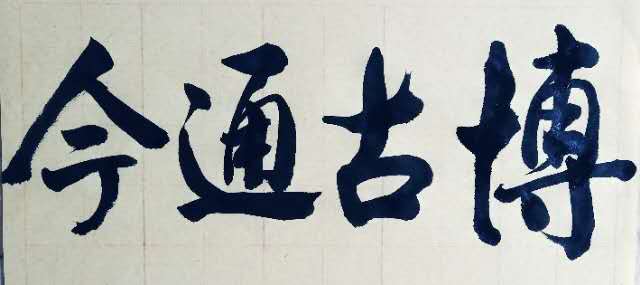 博古通今